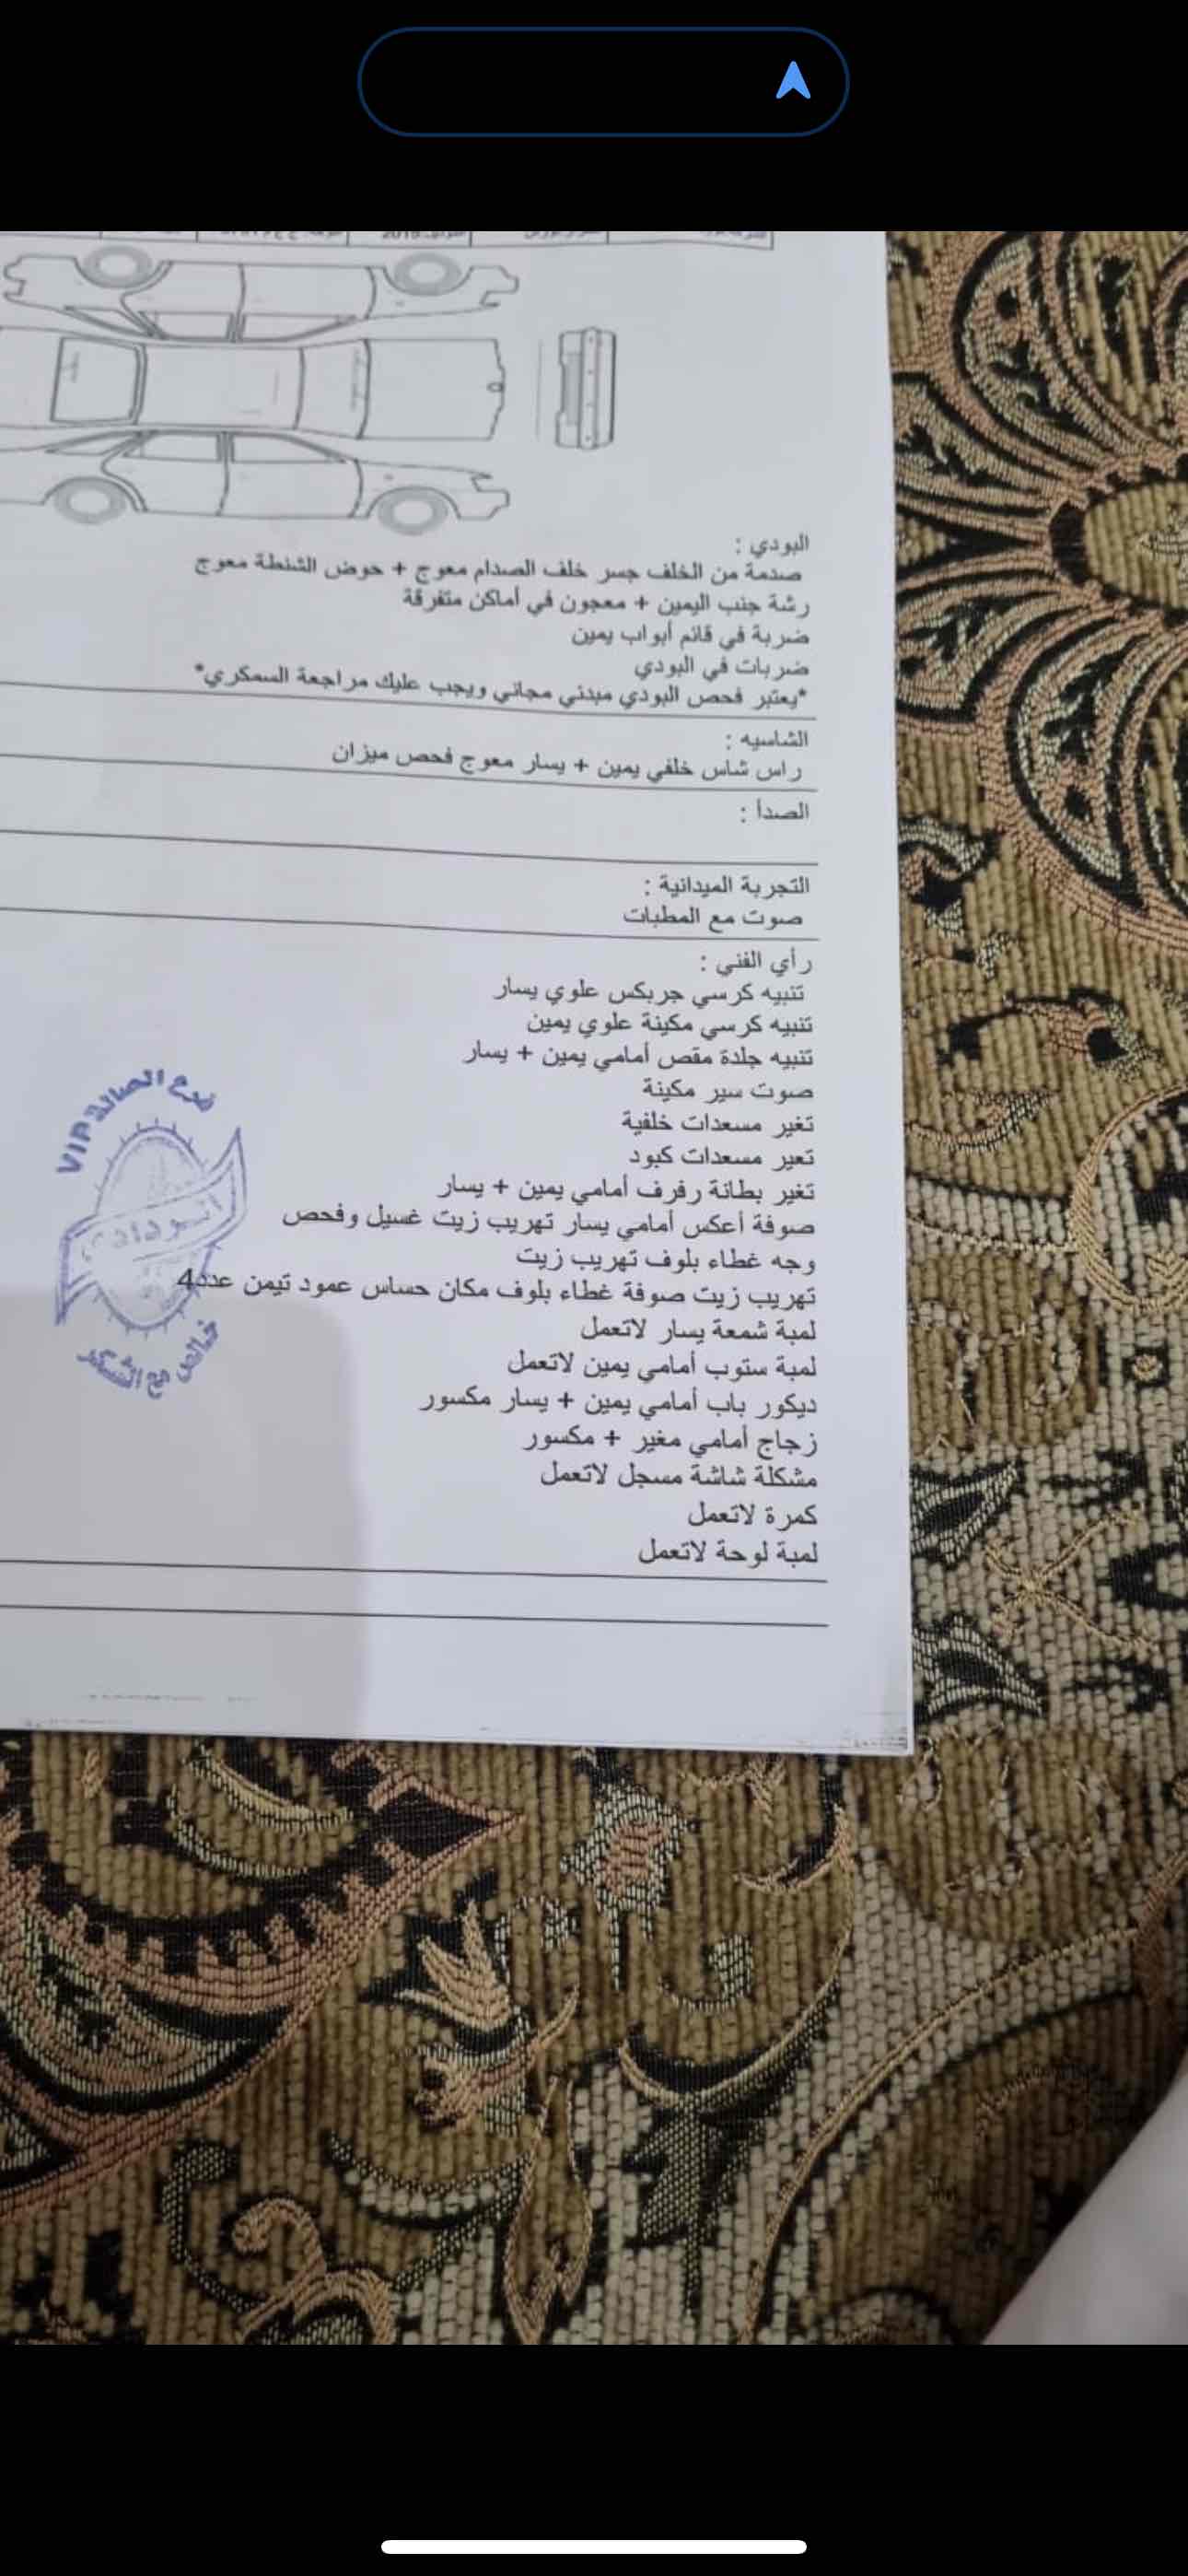 البودي :
صدمة من الخلف جسر خلف الصدام معوج + حوض الشنطة معوج
رشة جنب اليمين + معجون في أماكن متفرقة
ضربة في قائم أبواب يمين
ضربات في البودي
*يعتبر فحص البودي مبدئي مجاني ويجب عليك مراجعة السمكري*
الشاسيه :
راس شاس خلفي يمين + يسار معوج فحص ميزان
الصدأ :
التجربة الميدانية :
صوت مع المطبات
رأي الفني :
تنبيه كرسي جربكس علوي يسار
تنبيه كرسي مكينة علوي يمين
تنبيه جلدة مقص أمامي يمين + يسار
صوت سير مكينة
تغير مسعدات خلفية
تعير مسعدات كبود
تغير بطانة رفرف أمامي يمين + يسار
صوفة أعكس أمامي يسار تهريب زيت غسيل وفحص
وجه غطاء بلوف تهريب زيت
تهريب زيت صوفة غطاء بلوف مكان حساس عمود تيمن عدد4
لمبة شمعة يسار لاتعمل
لمبة ستوب أمامي يمين لاتعمل
ديكور باب أمامي يمين + يسار مكسور
زجاج أمامي مغير + مكسور
مشكلة شاشة مسجل لاتعمل
كمرة لاتعمل
لمبة لوحة لاتعمل
فرع الصالة VIP